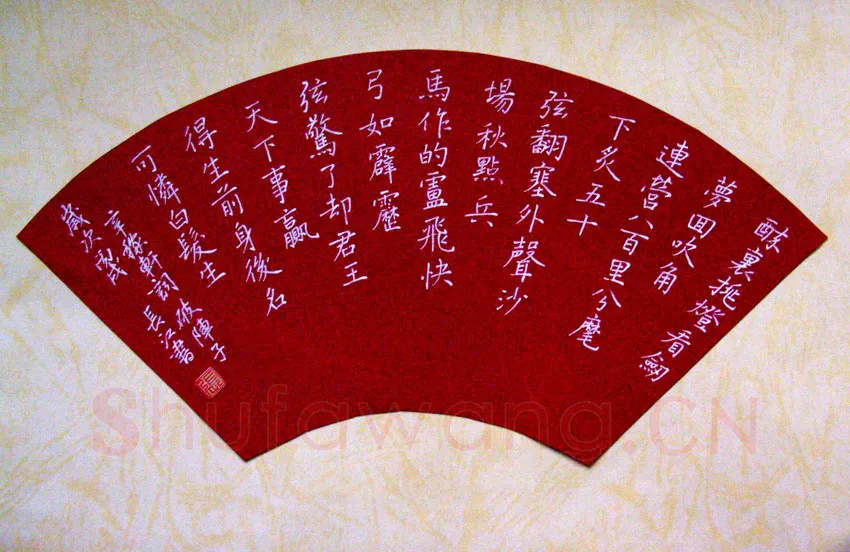 醉裏挑燈看劒
夢回吹角
連營八百里分麾
下炙五十
弦翻塞外聲沙
場秋點兵
馬作的盧飛快
弓如霹靂
弦驚了却君王
天下事贏
得生前身後名
可憐白髮生
辛稼軒詞破陣子
歲次丙戌長江書
Shufawang.CN